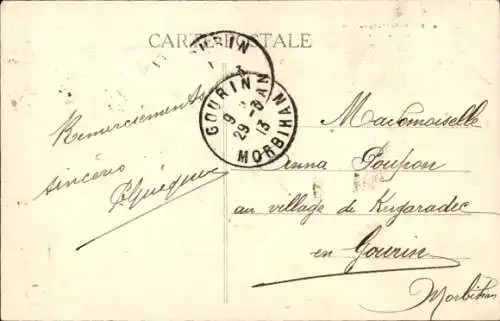 CARTE POSTALE
GOURIN
MORBIHAN
29 -8 13
Remerciements
sincères
Mademoiselle
Anna Poupon
au village de Kugaradec
en Gourin
Morbihan